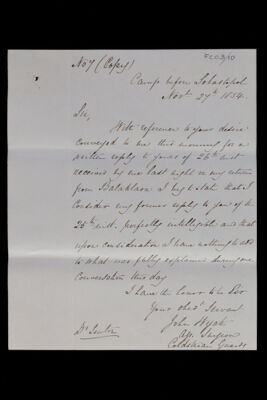 FCO3/10
No 7 (Copy)
Camp before Sebastopol
Novr 27th 1854.
Sir,
With reference to your desire
conveyed to me this morning for a
written reply to yours of 26th inst
received by me last night on my return
from Balaklava I beg to state that I
consider my former reply to your of the
25th inst. perfectly intelligible and that
upon consideration I have nothing to add
to what was fully explained during our
conversation this day
I have the honor to be Sir
Your obedt Servant
John Wyatt
Surgeon
Coldstream Guards
Dr Linton